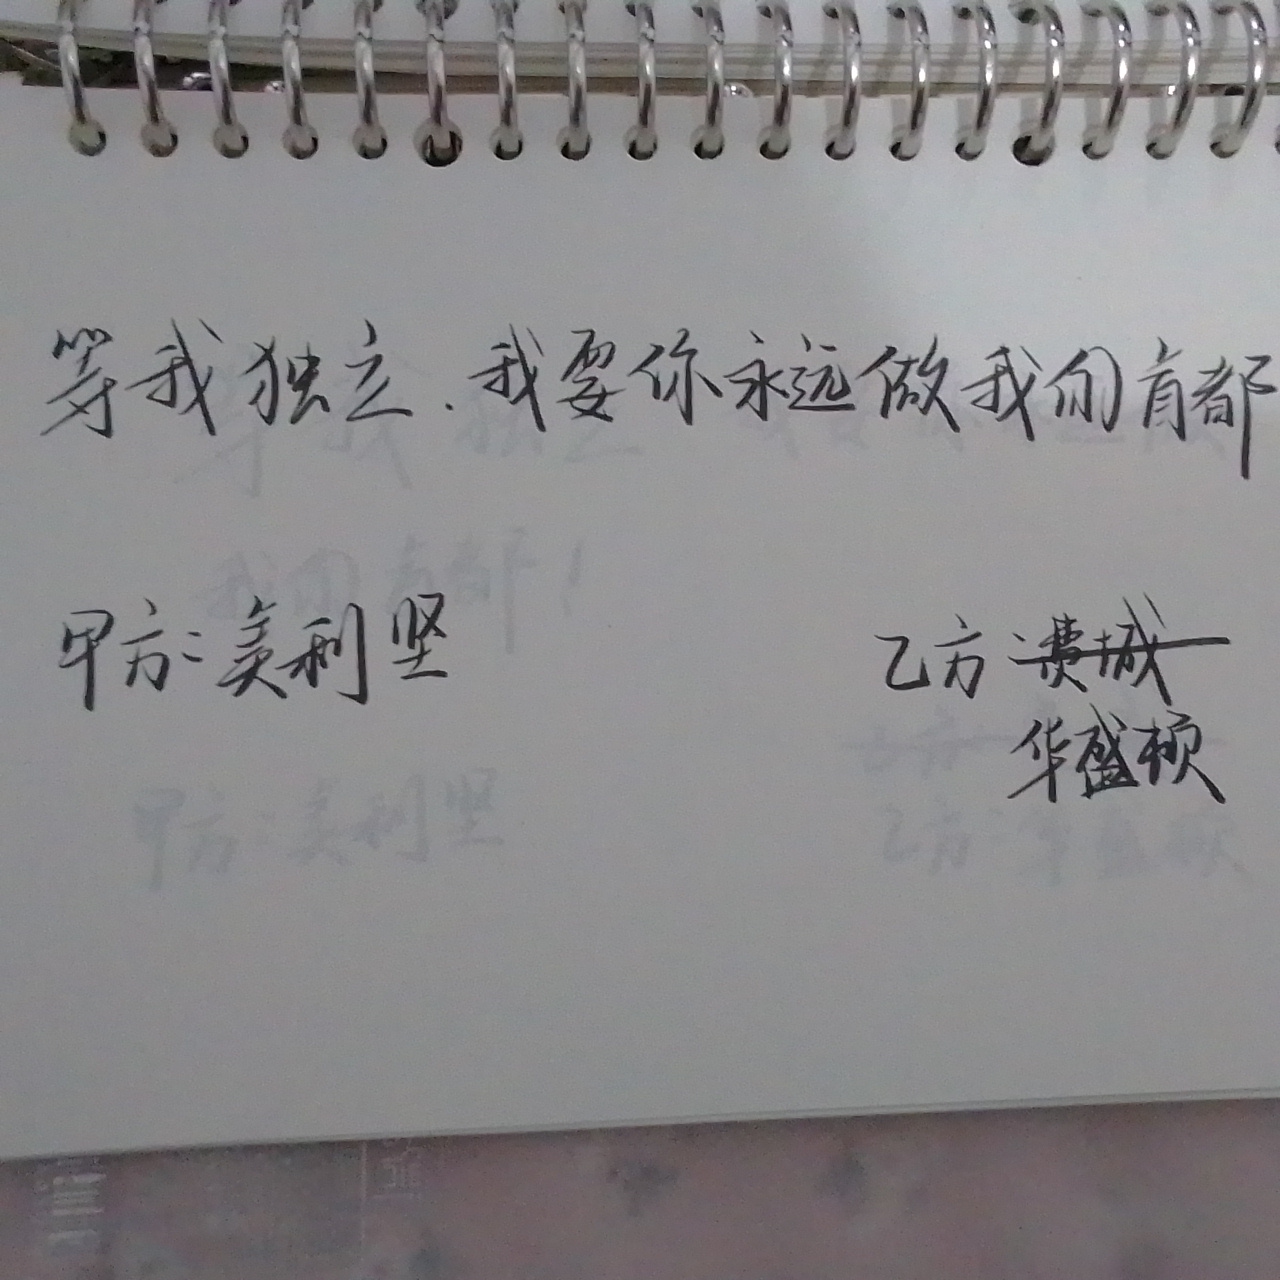 等我独立.我要你永远做我们首都
甲方:美利坚
乙方:费城
华盛顿